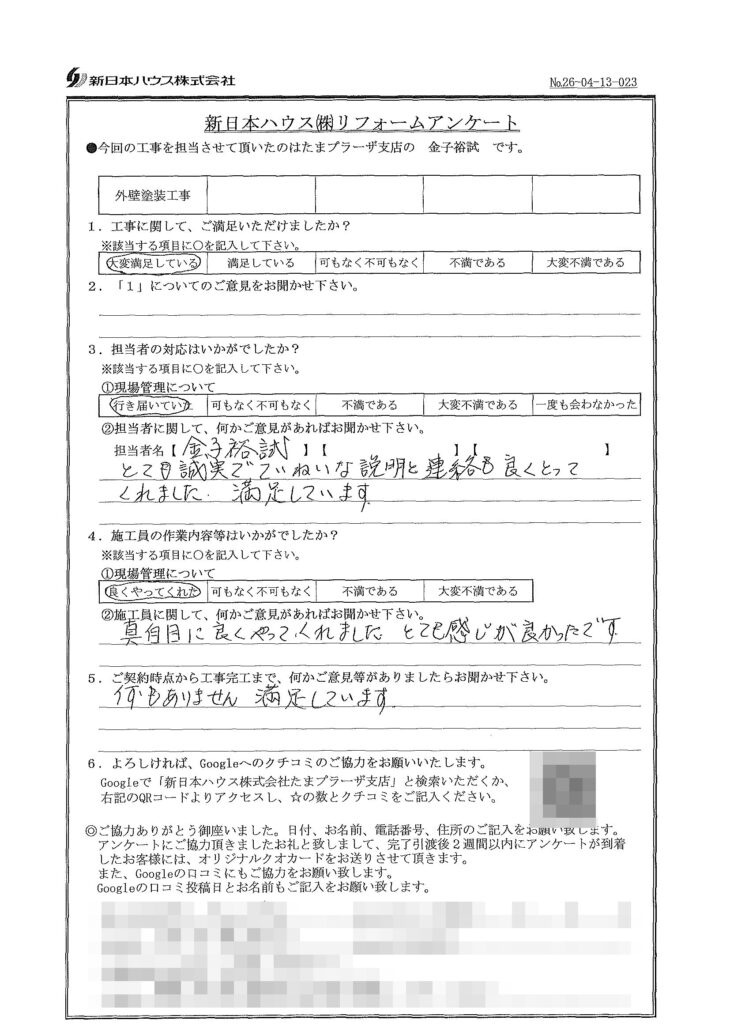 新日本ハウス株式会社
No.26-04-13-023
新日本ハウス㈱リフォームアンケート
●今回の工事を担当させて頂いたのはたまプラーザ支店の 金子裕試 です。
外壁塗装工事
１．工事に関して、ご満足いただけましたか？
※該当する項目に○を記入して下さい。
大変満足している 満足している 可もなく不可もなく 不満である 大変不満である
２．「１」についてのご意見をお聞かせ下さい。
３．担当者の対応はいかがでしたか？
※該当する項目に○を記入して下さい。
①現場管理について
行き届いていた 可もなく不可もなく 不満である 大変不満である 一度も会わなかった
②担当者に関して、何かご意見があればお聞かせ下さい。
担当者名【 金子裕試 】【 】【 】
とても誠実でていねいな説明と連絡も良くとって
くれました. 満足しています
４．施工員の作業内容等はいかがでしたか？
※該当する項目に○を記入して下さい。
①現場管理について
良くやってくれた 可もなく不可もなく 不満である 大変不満である
②施工員に関して、何かご意見があればお聞かせ下さい。
真面目に良くやってくれました とても感じが良かったです
５．ご契約時点から工事完工まで、何かご意見等がありましたらお聞かせ下さい。
何もありません 満足しています
６．よろしければ、Googleへのクチコミのご協力をお願いいたします。
Googleで「新日本ハウス株式会社たまプラーザ支店」と検索いただくか、
右記のQRコードよりアクセスし、☆の数とクチコミをご記入ください。
◎ご協力ありがとう御座いました。日付、お名前、電話番号、住所のご記入をお願い致します。
アンケートにご協力頂きましたお礼と致しまして、完了引渡後２週間以内にアンケートが到着
したお客様には、オリジナルクオカードをお送りさせて頂きます。
また、Googleの口コミにもご協力をお願い致します。
Googleの口コミ投稿日とお名前もご記入をお願い致します。